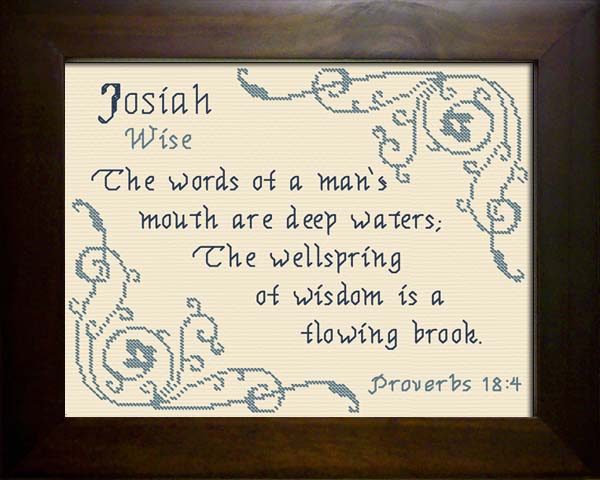 Josiah
Wise
The words of a man's
mouth are deep waters;
The wellspring
of wisdom is a
flowing brook.
Proverbs 18:4